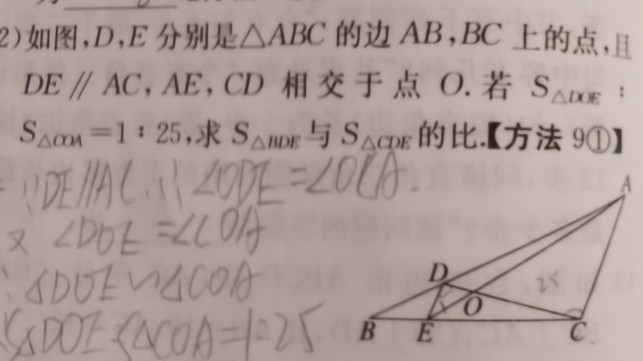 2)如图,D,E 分别是△ABC 的边 AB,BC 上的点,且
DE∥AC,AE,CD 相交于点 O.若 S△DOE:
S△COA=1:25,求 S△BDE与 S△CDE的比.【方法 9①】
∵DE∥AC ∴∠ODE=∠OCA.
又 ∠DOE=∠COA
∴△DOE∽△COA
S△DOE:S△COA=1:25
A
D
25
O
B E C